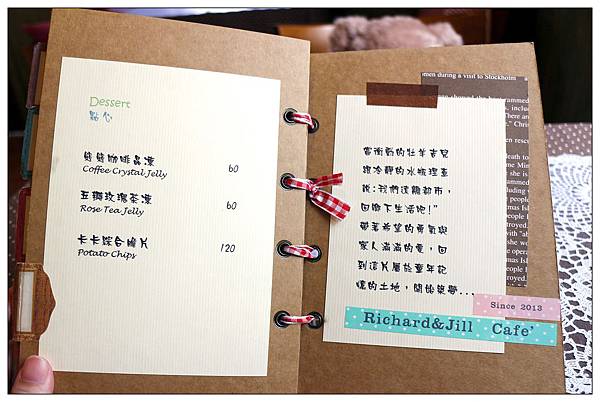 Dessert
點心
熊熊咖啡晶凍 60
Coffee Crystal Jelly
五瓣玫瑰茶凍 60
Rose Tea Jelly
卡卡綜合脆片 120
Potato Chips
當衝動的牡羊吉兒
跟冷靜的水瓶理查
說:我們遠離都市,
回鄉下生活吧!”
帶著希望的勇氣與
家人滿滿的愛,回
到這片屬於童年記
憶的土地,開始築夢...
omen during a visit to Stockholm
Since 2013
Richard&Jill Cafe’